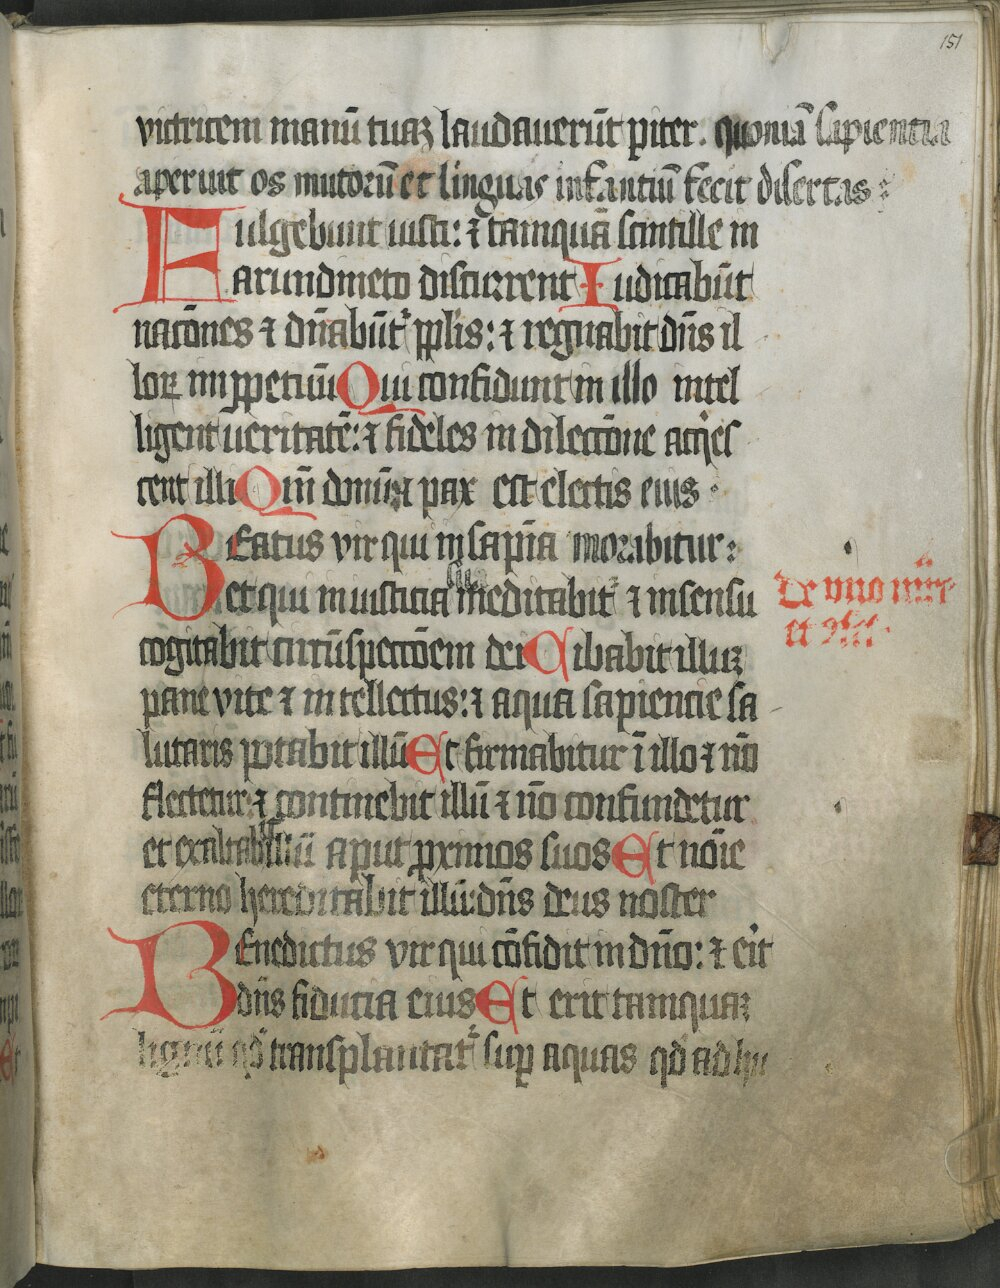 151
victricem manū tuaꝫ laudauerūt pīter. quoniā sapientia
aperuit os mutorū et linguas infantiū fecit disertas :
Fulgebunt iusti: ⁊ tamquā scintille in
arundineto discurrent Iudicabūt
natōnes ⁊ dn̄abūt᷑ pp̄lis: ⁊ regnabit dn̄s il
loꝝ in ꝑpetuū Qui confidunt in illo intel
ligent ueritatē: ⁊ fideles in dilectōne acq̄es
cent illi Qm̄ donū ⁊ pax est electis eius :
Beatus vir qui in sapīa morabitur :
et qui in iusticia sua meditabit᷑ ⁊ in sensu
cogitabit circūspectōem dei Cibabit illuꝫ
pane vite ⁊ intellectus: ⁊ aqua sapiencie sa
lutaris potabit illū Et firmabitur ī illo ⁊ nō
flectetur ⁊ continebit illū ⁊ nō confundetur
et exaltabit illū aput ꝓximos suos Et noīe
eterno hereditabit illū dn̄s deus noster
Benedictus vir qui cōfidit in dn̄o: ⁊ erit
dn̄s fiducia eius Et erit tamquaꝫ
lignū qd̄ transplantat᷑ suꝑ aquas qd̄ ad hu
De vno mr̄e
et ꝯff.